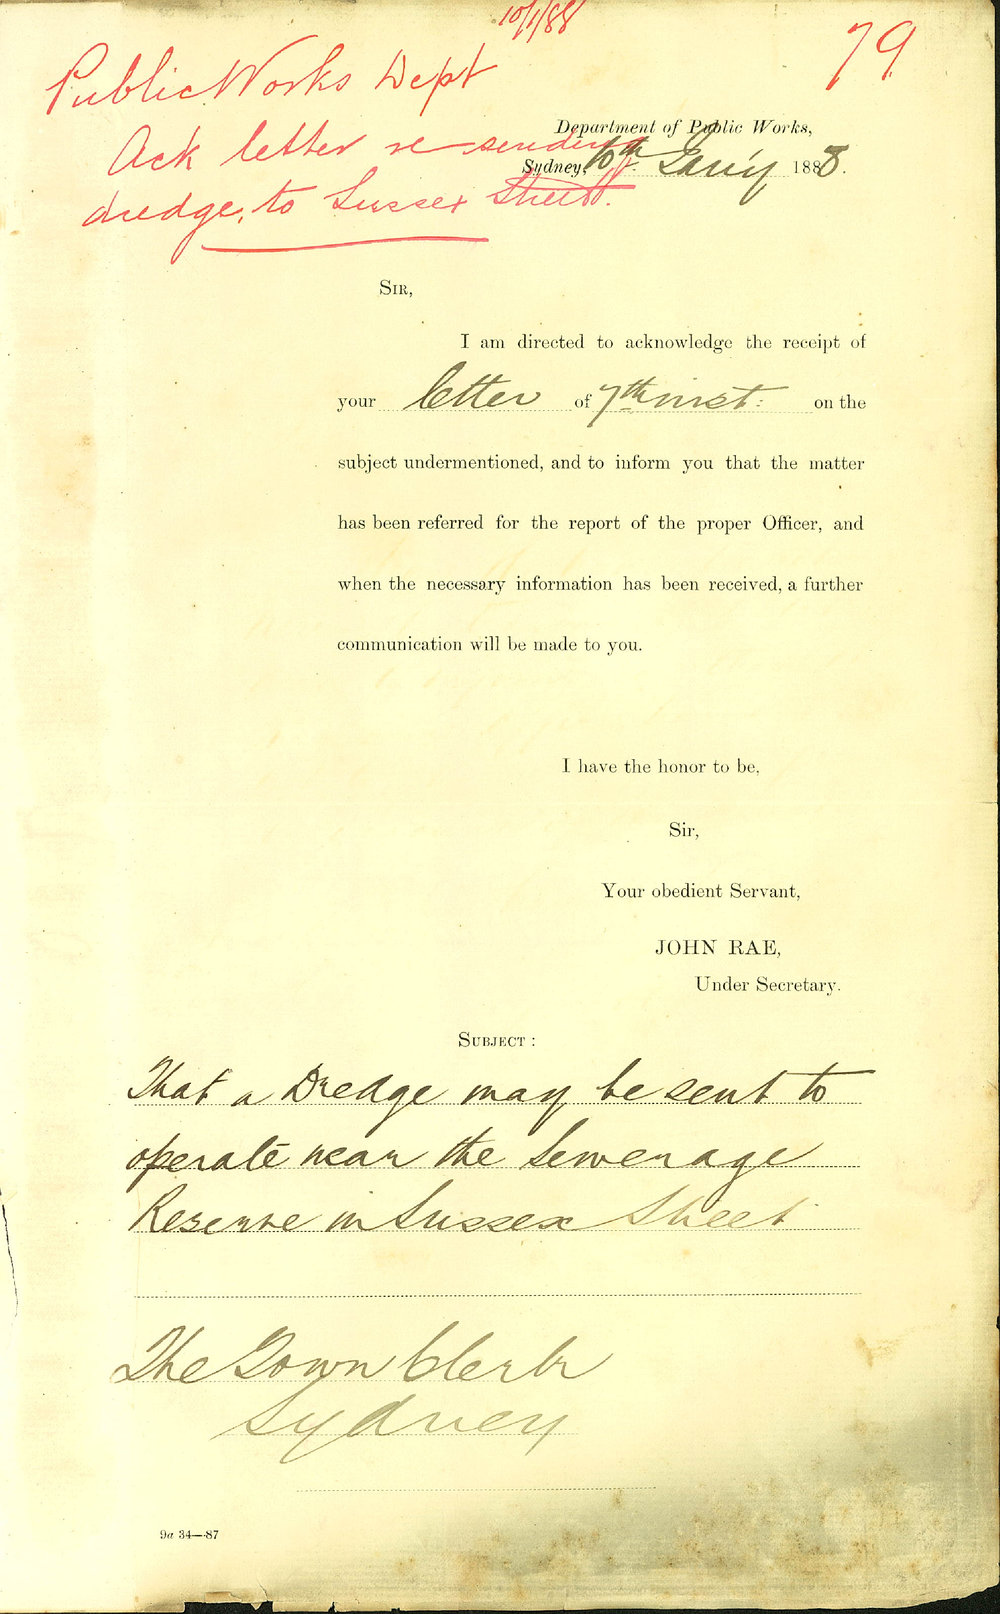 10/1/88
79
Public Works Dept
Ack letter re sending
dredge, to Sussex Street.
Department of Public Works,
Sydney, 10th Jan'y 1888.
SIR,
I am directed to acknowledge the receipt of
your letter of 7th inst: on the
subject undermentioned, and to inform you that the matter
has been referred for the report of the proper Officer, and
when the necessary information has been received, a further
communication will be made to you.
I have the honor to be,
Sir,
Your obedient Servant,
JOHN RAE,
Under Secretary.
SUBJECT :
That a Dredge may be sent to
operate near the Sewerage
Reserve in Sussex Street
The Town Clerk
Sydney
9a 34—87